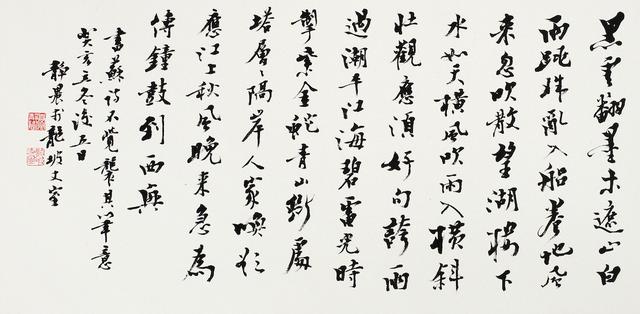 黑雲翻墨未遮山白
雨跳珠亂入船卷地風
来忽吹散望湖樓下
水如天橫風吹雨入樓斜
壯觀應須好句誇雨
過潮平江海碧電光時
掣紫金蛇青山斷處
塔層〻隔岸人家喚欲
應江上秋風晚来急為
傳鐘鼓到西興
書蘇詩不覺襲其筆意
癸亥立冬後五日
静農於龍坡丈室